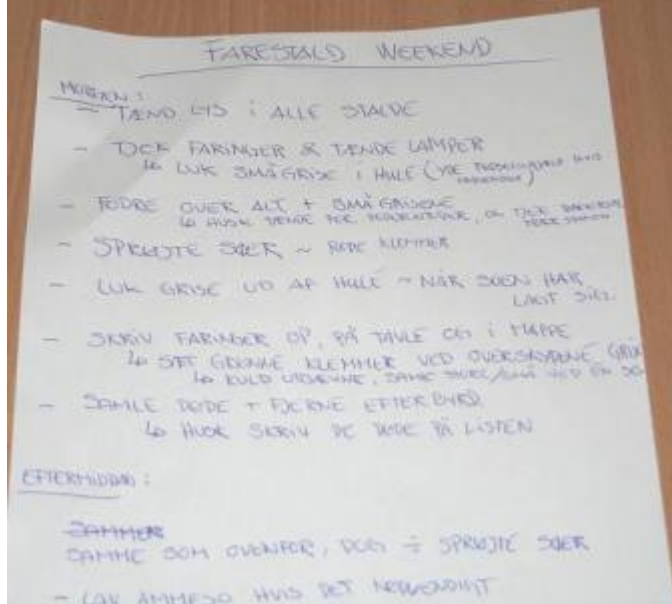 FARESTALD WEEKEND
MORGEN:
- TÆND LYS i ALLE STALDE
- TJCK FARINGER & TÆNDE LAMPER
↳ LUK SMÅGRISE i HULE (
- FODRE OVER ALT + SMÅGRISENE
↳ HUSK OG TJCK
- SPRØJTE SØER ~ RØDE KLEMMER
- LUK GRISE UD AF HULE ~ NÅR SOEN HAR
LAGT SIG.
- SKRIV FARINGER OP, PÅ TAVLE OG i MAPPE
↳ SÆT GRØNNE KLEMMER VED OVERSKYDENE
↳ KULD UDJÆVNE, SAMLE STORE/SMÅ VED EN SO
- SAMLE DØDE + FJERNE EFTERBYRD
↳ HUSK SKRIV DE DØDE PÅ LISTEN
EFTERMIDDAG:
SAMME SOM OVENFOR, DOG ÷ SPRØJTE SØER
- LAV AMMESO HVIS DET NØDVENDIGT